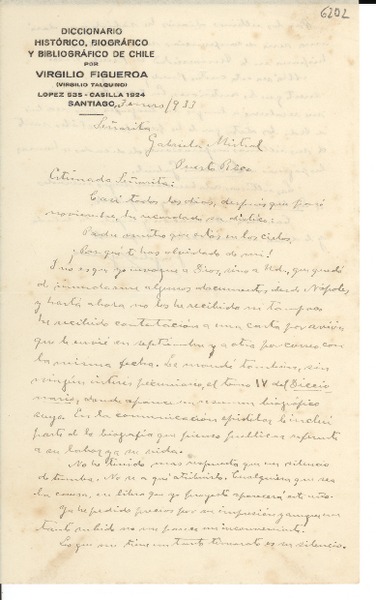 6202
DICCIONARIO
HISTÓRICO, BIOGRÁFICO
Y BIBLIOGRÁFICO DE CHILE
POR
VIRGILIO FIGUEROA
(VIRGILIO TALQUINO)
LOPEZ 535 - CASILLA 1924
SANTIAGO, Enero /933
Señorita
Gabriela Mistral
Puerto Rico
Estimada Señorita:
Casi todos los días, después que pasó
noviembre, he recordado su dístico:
Padre nuestro que estás en los cielos,
¡Por qué te has olvidado de mí!
I no es que yo invoque a Dios, sino a Ud., que quedó
de enviarme algunos documentos desde Nápoles,
y hasta ahora no los he recibido ni tampoco
he recibido contestación a una carta por avión
que le envié en septiembre y a otra por correo con
la misma fecha. Le mandé también, sin
ningún interés pecuniario, el tomo IV del Diccio
nario, donde aparece un resumen biográfico
suyo. En la comunicación epistolar le incluí
parte de la biografía que pienso publicar referente
a su labor y a su vida.
No he tenido mas respuesta que un silencio
de tumba. No sé a qué atribuirlo. Cualquiera que sea
la causa, un libro que yo proyecto aparecerá este año.
Ya he pedido precios por su impresión y aunque un
tanto subido no me parece un inconveniente.
Lo que me tiene un tanto es su silencio.